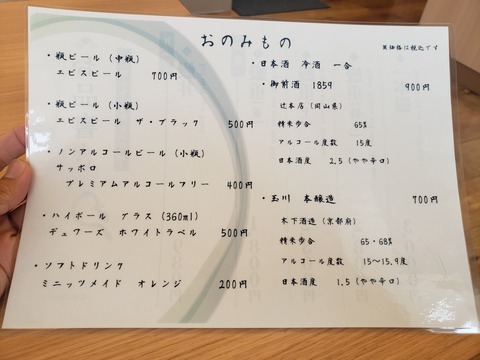 おのみもの
※価格は税込です
・瓶ビール (中瓶)
エビスビール 700円
・瓶ビール (小瓶)
エビスビール ザ・ブラック 500円
・ノンアルコールビール (小瓶)
サッポロ
プレミアムアルコールフリー 400円
・ハイボール グラス (360ml)
デュワーズ ホワイトラベル 500円
・ソフトドリンク
ミニッツメイド オレンジ 200円
・日本酒 冷酒 一合
・御前酒 1859 900円
辻本店 (岡山県)
精米歩合 65%
アルコール度数 15度
日本酒度 2.5 (やや辛口)
・玉川 本醸造 700円
木下酒造 (京都府)
精米歩合 65・68%
アルコール度数 15~15.9度
日本酒度 1.5 (やや辛口)